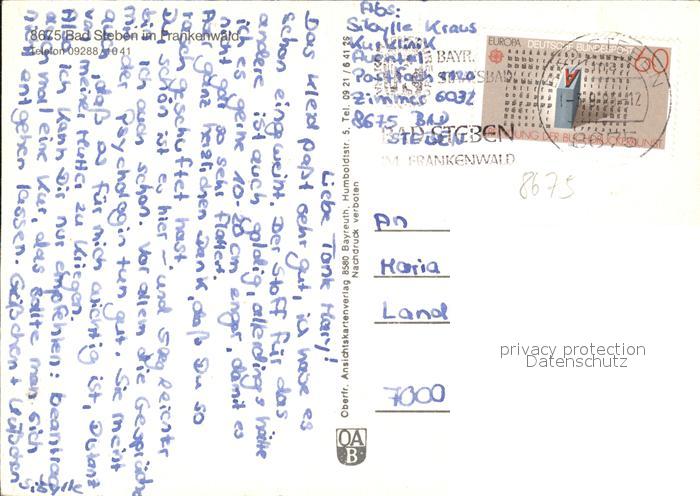 8675 Bad Steben im Frankenwald
Telefon 09288/1041
Liebe Tante Mary!
Das Kleid paßt sehr gut, ich habe es
schon eingeweiht. Der Stoff für das
andere ist auch goldig, allerdings hätte
ich es gerne 10-20 cm enger, damit es
nicht gar so sehr flattert.
Aber ganz herzlichen Dank, daß Du so
rasch geschuftet hast
Du, schön ist es hier – und erleichtert
bin ich auch schon. Vor allem die Gespräche
mit der Psychologin tun gut. Sie meint
auch, daß es für mich wichtig ist, Distanz
von meiner Mutter zu kriegen.
Ich kann Dir nur empfehlen: beantrag
auch mal eine Kur, das sollte man sich
nicht entgehen lassen. Grüßchen + Küßchen
Sibylle
Oberfr. Ansichtskartenverlag 8580 Bayreuth, Humboldtstr. 5, Tel. 09 21 / 6 41 26
Nachdruck verboten
OA
B
Abs:
Sibylle Kraus
Kurklinik
Postfach 1120
Zimmer 6032
8675 BAD
STEBEN
BAYR.
STAATSBAD
BAD STEBEN
IM FRANKENWALD
EUROPA DEUTSCHE BUNDESPOST
60
8675
8675
An
Maria
Land
7000
privacy protection
Datenschutz